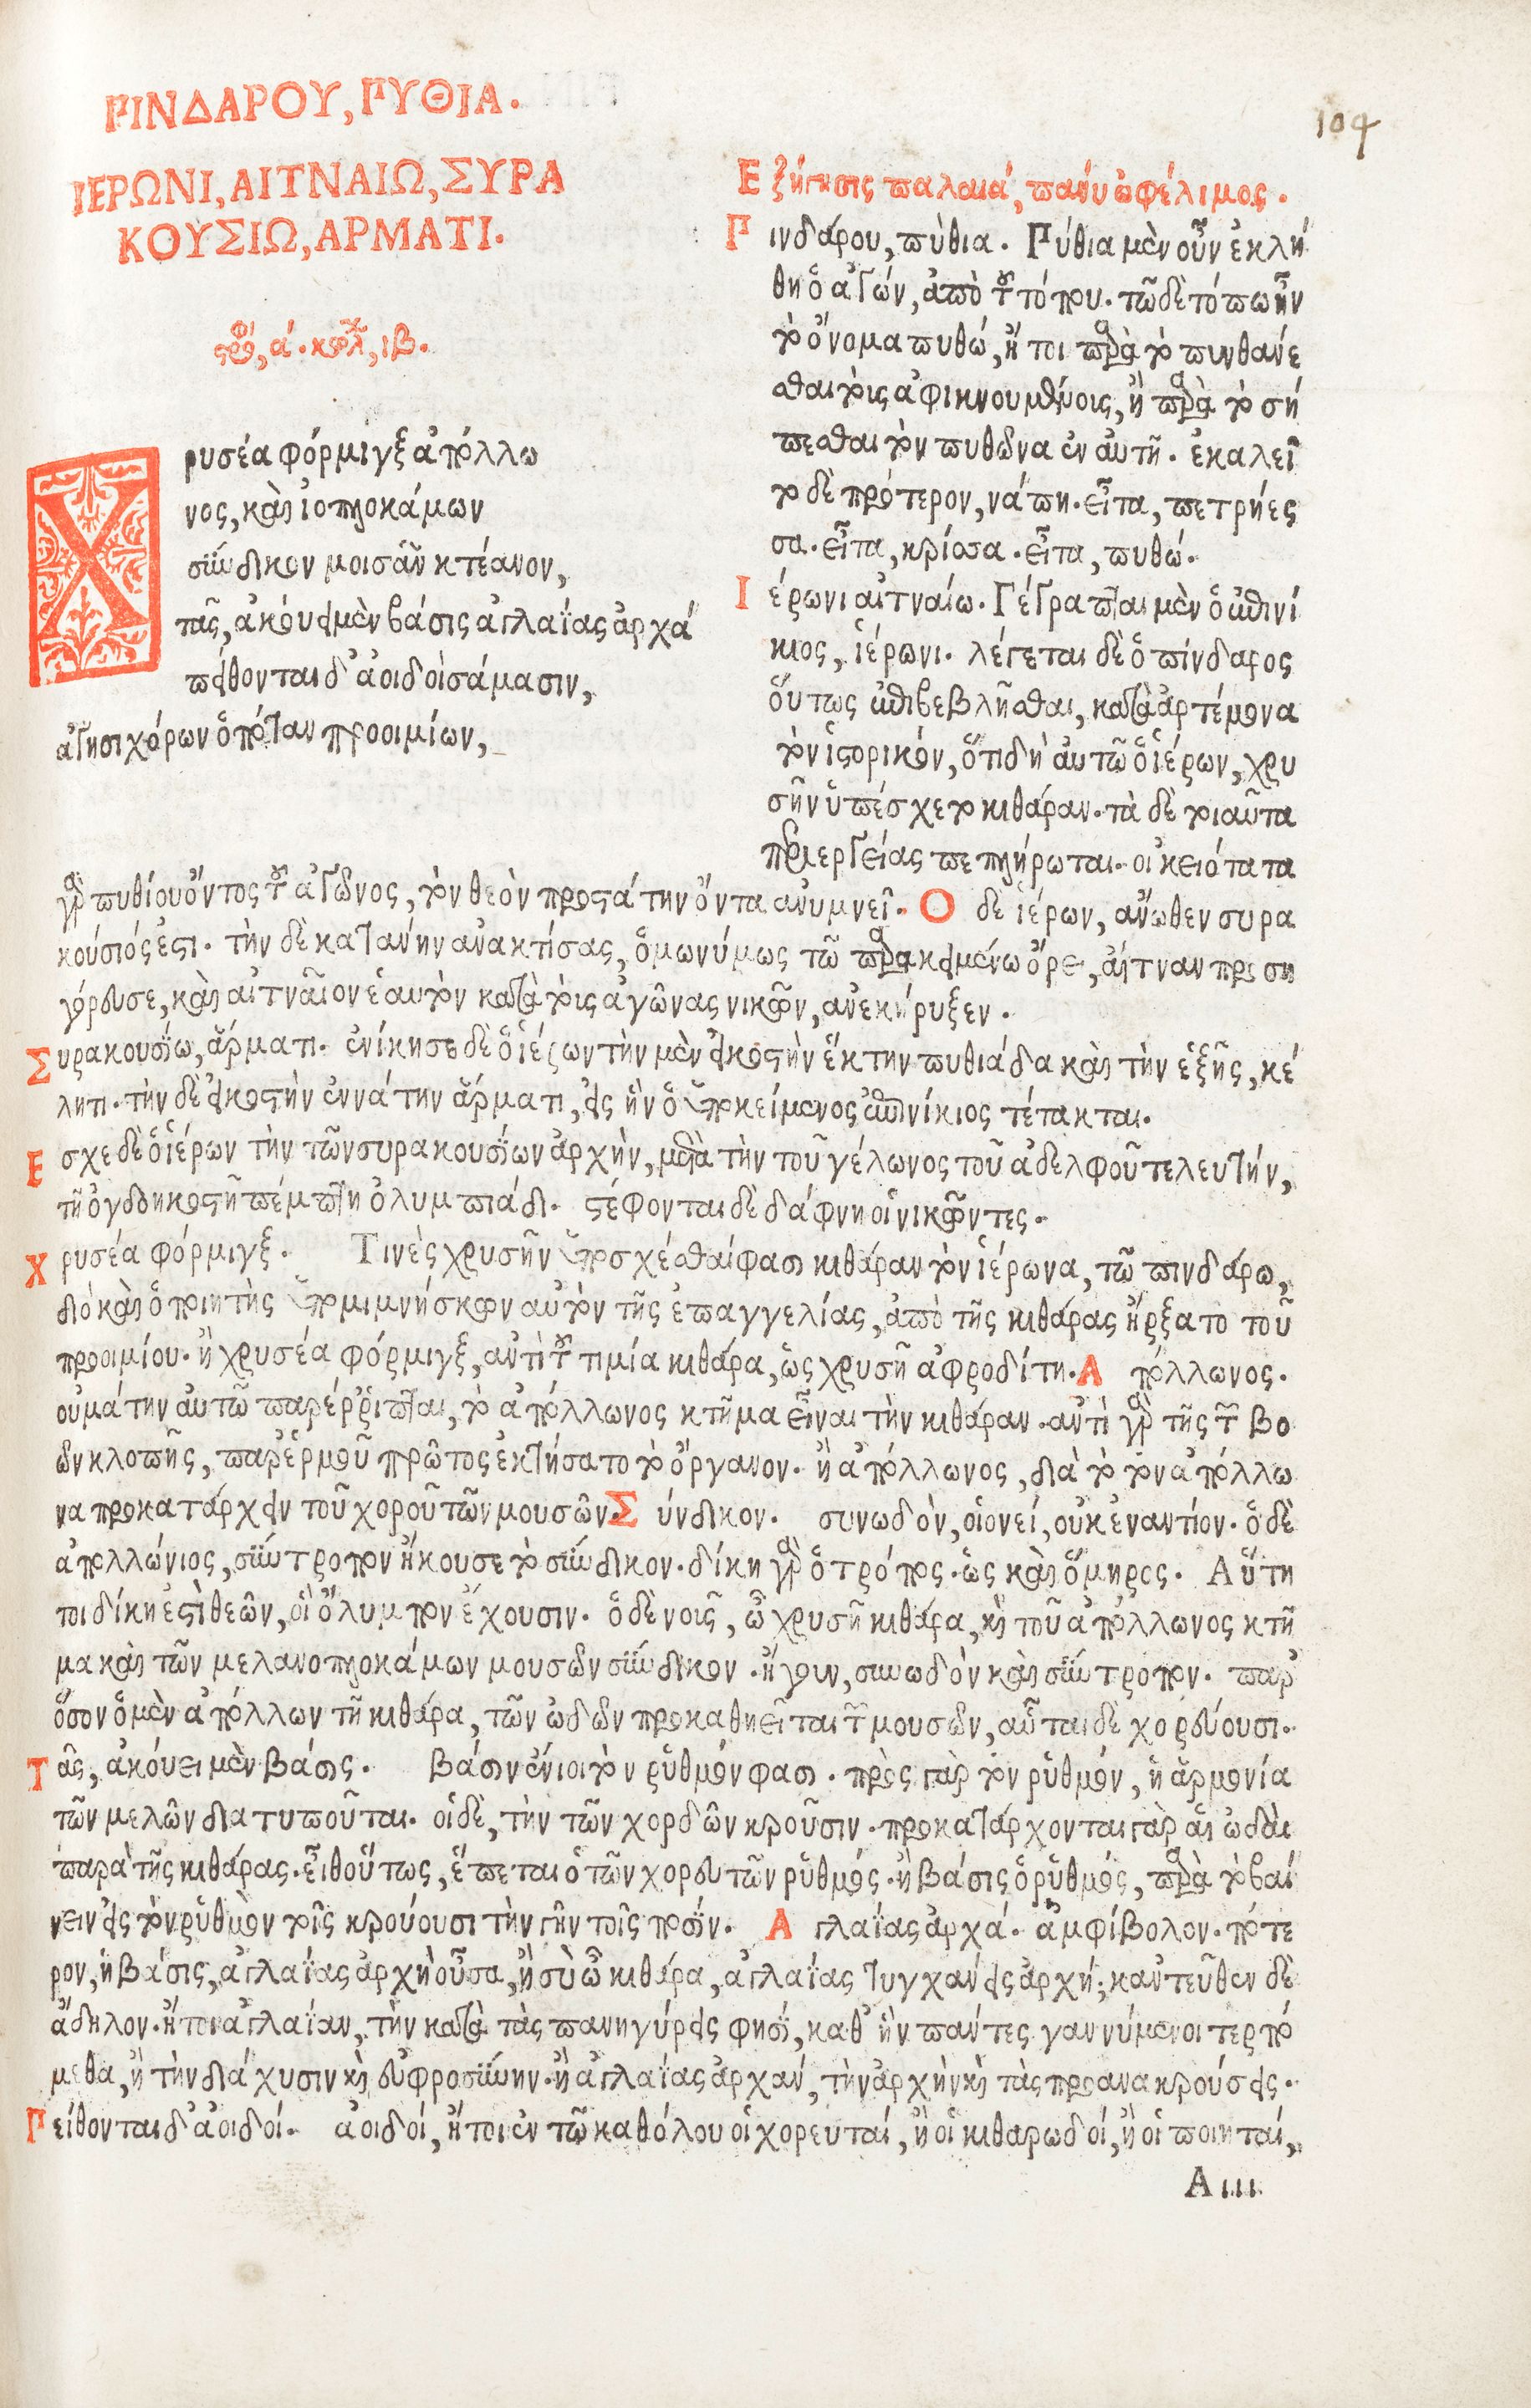 ΠΙΝΔΑΡΟΥ, ΠΥΘΙΑ.
ΙΕΡΩΝΙ, ΑΙΤΝΑΙΩ, ΣΥΡΑ
ΚΟΥΣΙΩ, ΑΡΜΑΤΙ.
104
στρο, ά. κωλ, ιβ.
Χρυσέα φόρμιγξ ἀπόλλω
νος, καὶ ἰοπλοκάμων
σύνδικον μοισᾶν κτέανον,
τᾶς, ἀκούει μὲν βάσις ἀγλαΐας ἀρχά
πείθονται δ' ἀοιδοὶ σάμασιν,
ἁγησιχόρων ὁπόταν προοιμίων,
Εξήγησις παλαιά, πάνυ ὠφέλιμος.
Πινδάρου, πύθια. Πύθια μὲν οὖν ἐκλή
θη ὁ ἀγών, ἀπὸ τοῦ τόπου. τῶ δὲ τόπω ἦν
τὸ ὄνομα πυθώ, ἤτοι παρὰ τὸ πυνθάνε
σθαι τοῖς ἀφικνουμένοις, ἢ παρὰ τὸ σή
πεσθαι τὸν πυθῶνα ἐν αὐτῆ. ἐκαλεῖ
το δὲ πρότερον, νάπη. εἶτα, πετρήες
σα. εἶτα, κρίσσα. εἶτα, πυθώ.
Ιέρωνι αἰτναίω. Γέγραπται μὲν ὁ ἐπινί
κιος, ἱέρωνι. λέγεται δὲ ὁ πίνδαρος
οὕτως ἐπιβεβλῆσθαι, κατὰ ἀρτέμονα
τὸν ἱστορικόν, ὅτι δὴ αὐτῶ ὁ ἱέρων, χρυ
σῆν ὑπέσχετο κιθάραν. τὰ δὲ τοιαῦτα
περιεργείας πεπλήρωται. οἰκειότατα
γὰρ πυθίου ὄντος τοῦ ἀγῶνος, τὸν θεὸν προστάτην ὄντα ἀνυμνεῖ. Ο δὲ ἱέρων, ἄνωθεν συρα
κούσιός ἐστι. τὴν δὲ κατάνην ἀνακτίσας, ὁμωνύμως τῶ παρακειμένω ὄρει, αἴτναν προση
γόρευσε, καὶ αἰτναῖον ἑαυτὸν κατὰ τοὺς ἀγῶνας νικῶν, ἀνεκήρυξεν.
Συρακουσίω, ἅρματι. ἐνίκησε δὲ ὁ ἱέρων τὴν μὲν εἰκοστὴν ἕκτην πυθιάδα καὶ τὴν ἑξῆς, κέ
λητι. τὴν δὲ εἰκοστὴν ἐννάτην ἅρματι, εἰς ἣν ὁ ὑποκείμενος ἐπινίκιος τέτακται.
Εσχε δὲ ὁ ἱέρων τὴν τῶν συρακουσίων ἀρχὴν, μετὰ τὴν τοῦ γέλωνος τοῦ ἀδελφοῦ τελευτήν,
τῆ ὀγδοηκοστῆ πέμπτη ὀλυμπιάδι. στέφονται δὲ δάφνη οἱ νικῶντες.
Χρυσέα φόρμιγξ. Τινὲς χρυσῆν ὑποσχέσθαί φασι κιθάραν τὸν ἱέρωνα, τῶ πινδάρω,
διὸ καὶ ὁ ποιητὴς ὑπομιμνήσκων αὐτὸν τῆς ἐπαγγελίας, ἀπὸ τῆς κιθάρας ἤρξατο τοῦ
προοιμίου. ἢ χρυσέα φόρμιγξ, ἀντὶ τοῦ τιμία κιθάρα, ὡς χρυσῆ ἀφροδίτη. Απόλλωνος.
οὐ μάτην αὐτῶ παρέρριπται, τὸ ἀπόλλωνος κτῆμα εἶναι τὴν κιθάραν. ἀντὶ γὰρ τῆς τῶν βο
ῶν κλοπῆς, παρ' ἑρμοῦ πρῶτος ἐκτήσατο τὸ ὄργανον. ἢ ἀπόλλωνος, διὰ τὸ τὸν ἀπόλλω
να προκατάρχειν τοῦ χοροῦ τῶν μουσῶν. Σύνδικον. συνωδὸν, οἱονεί, οὐκ ἐναντίον. ὁ δὲ
ἀπολλώνιος, σύντροπον ἤκουσε τὸ σύνδικον. δίκη γὰρ ὁ τρόπος. ὡς καὶ ὅμηρος. Αὕτη
τοι δίκη ἐστὶ θεῶν, οἳ ὄλυμπον ἔχουσιν. ὁ δὲ νοῦς, ὦ χρυσῆ κιθάρα, καὶ τοῦ ἀπόλλωνος κτῆ
μα καὶ τῶν μελανοπλοκάμων μουσῶν σύνδικον. ἤγουν, συνωδὸν καὶ σύντροπον. παρ'
ὅσον ὁ μὲν ἀπόλλων τῆ κιθάρα, τῶν ὠδῶν προκαθηεῖται τῶν μουσῶν, αὗται δὲ χορεύουσι.
Τᾶς, ἀκούει μὲν βάσις. Βάσιν ἔνιοι τὸν ῥυθμόν φασι. πρὸς γὰρ τὸν ῥυθμόν, ἡ ἁρμονία
τῶν μελῶν διατυποῦται. οἱ δὲ, τὴν τῶν χορδῶν κροῦσιν. προκατάρχονται γὰρ αἱ ὠδαὶ
παρὰ τῆς κιθάρας. εἶθ οὕτως, ἕπεται ὁ τῶν χορευτῶν ῥυθμός. ἢ βάσις ὁ ῥυθμός, παρὰ τὸ βαί
νειν εἰς τὸν ῥυθμὸν τοῖς κρούουσι τὴν γῆν τοῖς ποσίν. Αγλαΐας ἀρχά. ἀμφίβολον. πότε
ρον, ἡ βάσις, ἀγλαΐας ἀρχὴ οὖσα, ἢ σὺ ὦ κιθάρα, ἀγλαΐας τυγχάνεις ἀρχή; κἀντεῦθεν δὲ
ἄδηλον. ἤτοι ἀγλαΐαν, τὴν κατὰ τὰς πανηγύρεις φησί, καθ' ἣν πάντες γαννύμενοι τερπό
μεθα, ἢ τὴν διάχυσιν καὶ εὐφροσύνην. ἢ ἀγλαΐας ἀρχάν, τὴν ἀρχὴν καὶ τὰς προανακρούσεις.
Πείθονται δ' ἀοιδοί. ἀοιδοί, ἤτοι ἐν τῶ καθόλου οἱ χορευταί, ἢ οἱ κιθαρωδοί, ἢ οἱ ποιηταί,
Α ιιι